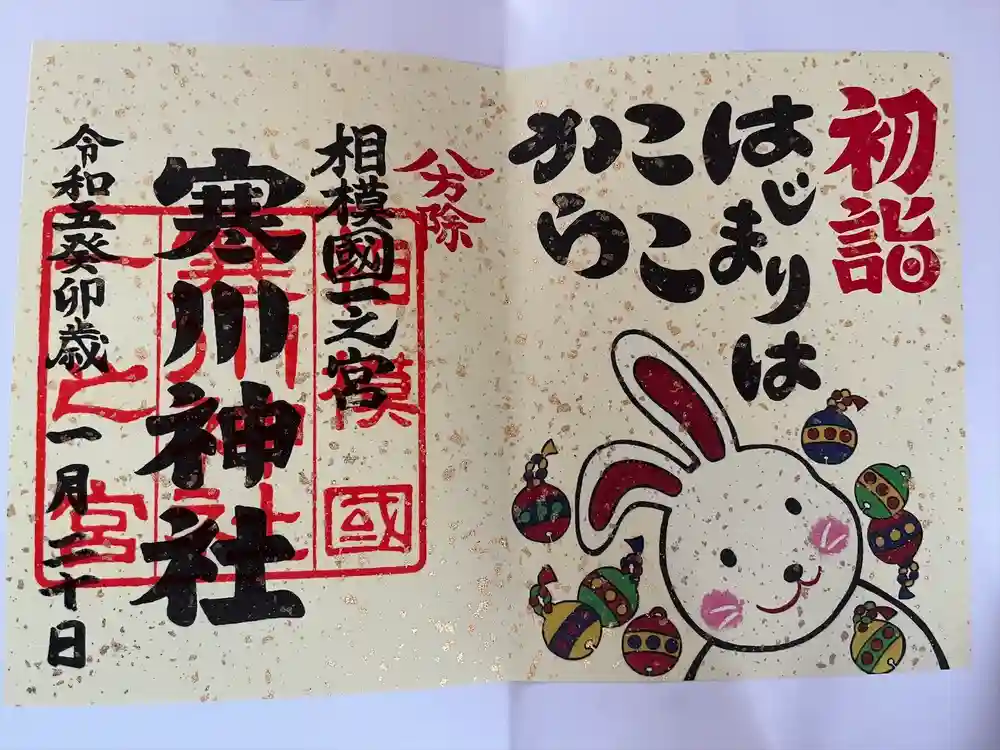 初詣
はじまりは
ここ
から
八方除
相模國一之宮
寒川神社
令和五癸卯歳一月二十日
相模國
寒川神社
一之宮